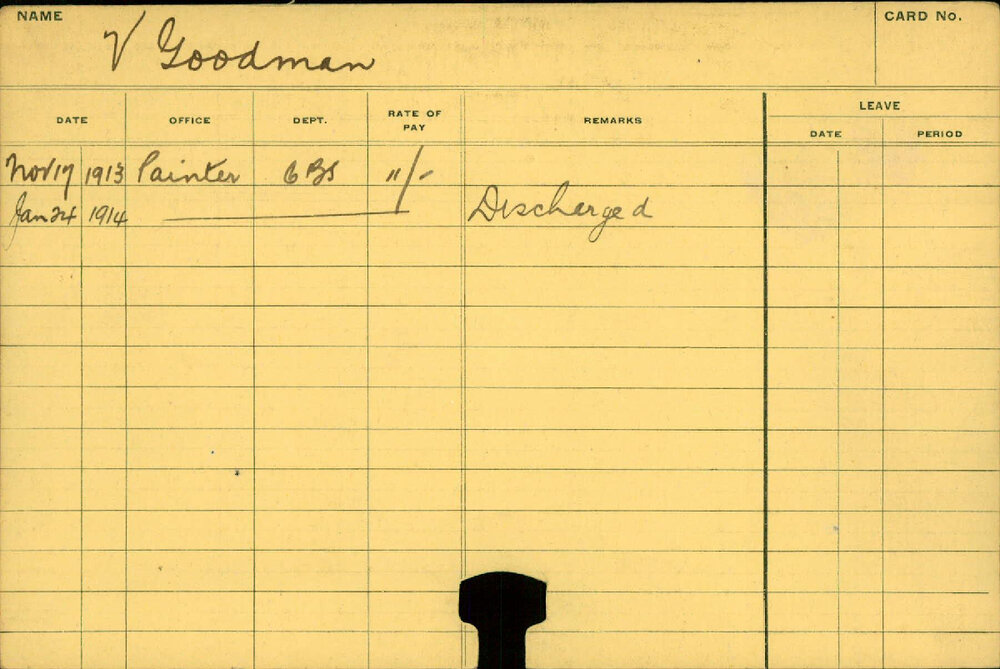 NAME V Goodman CARD No.
DATE OFFICE DEPT. RATE OF PAY REMARKS LEAVE
DATE PERIOD
Nov 17 1913 Painter 11/-
Jan 24 1914 Discharged